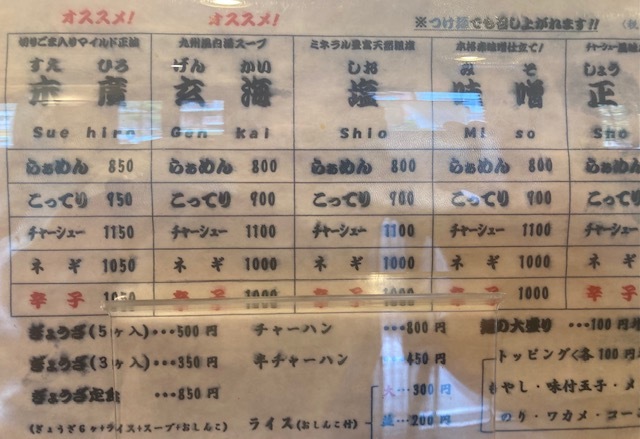 オススメ! オススメ! ※つけ麺でも召し上がれます!!
切りごま入りマイルド正油 九州風白湯スープ ミネラル豊富天然塩 本格赤味噌仕立て!
すえ ひろ げん かい しお み そ しょう
末 廣 玄 海 塩 味 噌 正
Sue hiro Gen kai Shio Mi so Sho
らぁめん 850 らぁめん 800 らぁめん 800 らぁめん 800 らぁめん
こってり 950 こってり 900 こってり 900 こってり 900 こってり
チャーシュー 1150 チャーシュー 1100 チャーシュー 1100 チャーシュー 1100 チャーシュー
ネギ 1050 ネギ 1000 ネギ 1000 ネギ 1000 ネギ
辛子 1050 辛子 1000 辛子 1000 辛子 1000 辛子
ぎょうざ(5ヶ入)・・・500円 チャーハン ・・・800円 麺の大盛り ・・・100円
ぎょうざ(3ヶ入)・・・350円 半チャーハン ・・・450円 トッピング<各100円
ぎょうざ定食 ・・・850円 大・・・300円 もやし・味付玉子・メ
(ぎょうざ6ヶ+ライス+スープ+おしんこ) ライス(おしんこ付) 並・・・200円 のり・ワカメ・コー